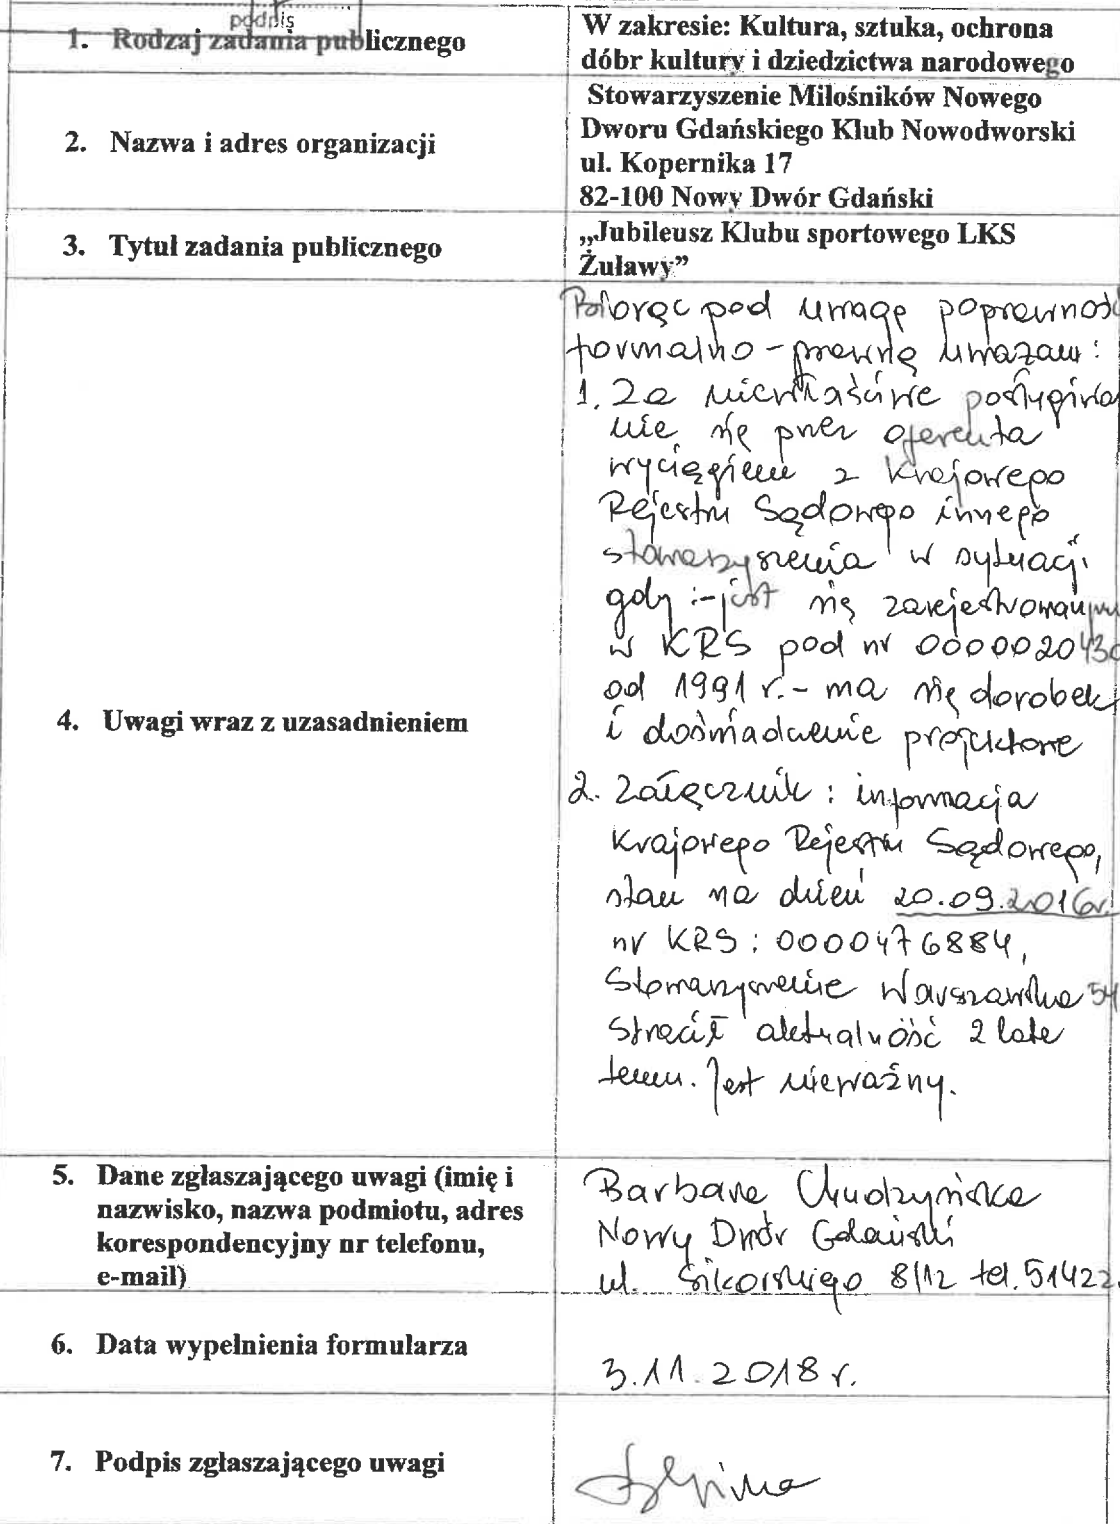 podpis
1. Rodzaj zadania publicznego
W zakresie: Kultura, sztuka, ochrona
dóbr kultury i dziedzictwa narodowego
2. Nazwa i adres organizacji
Stowarzyszenie Miłośników Nowego
Dworu Gdańskiego Klub Nowodworski
ul. Kopernika 17
82-100 Nowy Dwór Gdański
3. Tytuł zadania publicznego
„Jubileusz Klubu sportowego LKS
Żuławy”
4. Uwagi wraz z uzasadnieniem
Biorąc pod uwagę poprawność
formalno-prawną uważam:
1. Za niewłaściwe posługiwa
nie się przez oferenta
wyciągiem z Krajowego
Rejestru Sądowego innego
stowarzyszenia w sytuacji
gdy :- jest się zarejestrowanym
w KRS pod nr 000002043
od 1991 r. - ma się dorobek
i doświadczenie projektowe
2. Załącznik : informacja
Krajowego Rejestru Sądowego,
stan na dzień 20.09.2016r.
nr KRS : 0000476884,
Stowarzyszenie Warszawska 54
stracił aktualność 2 lata
temu. Jest nieważny.
5. Dane zgłaszającego uwagi (imię i
nazwisko, nazwa podmiotu, adres
korespondencyjny nr telefonu,
e-mail)
Barbara Chudzyńska
Nowy Dwór Gdański
ul. Sikorskiego 8/12 tel. 51422
6. Data wypełnienia formularza
3.11.2018 r.
7. Podpis zgłaszającego uwagi